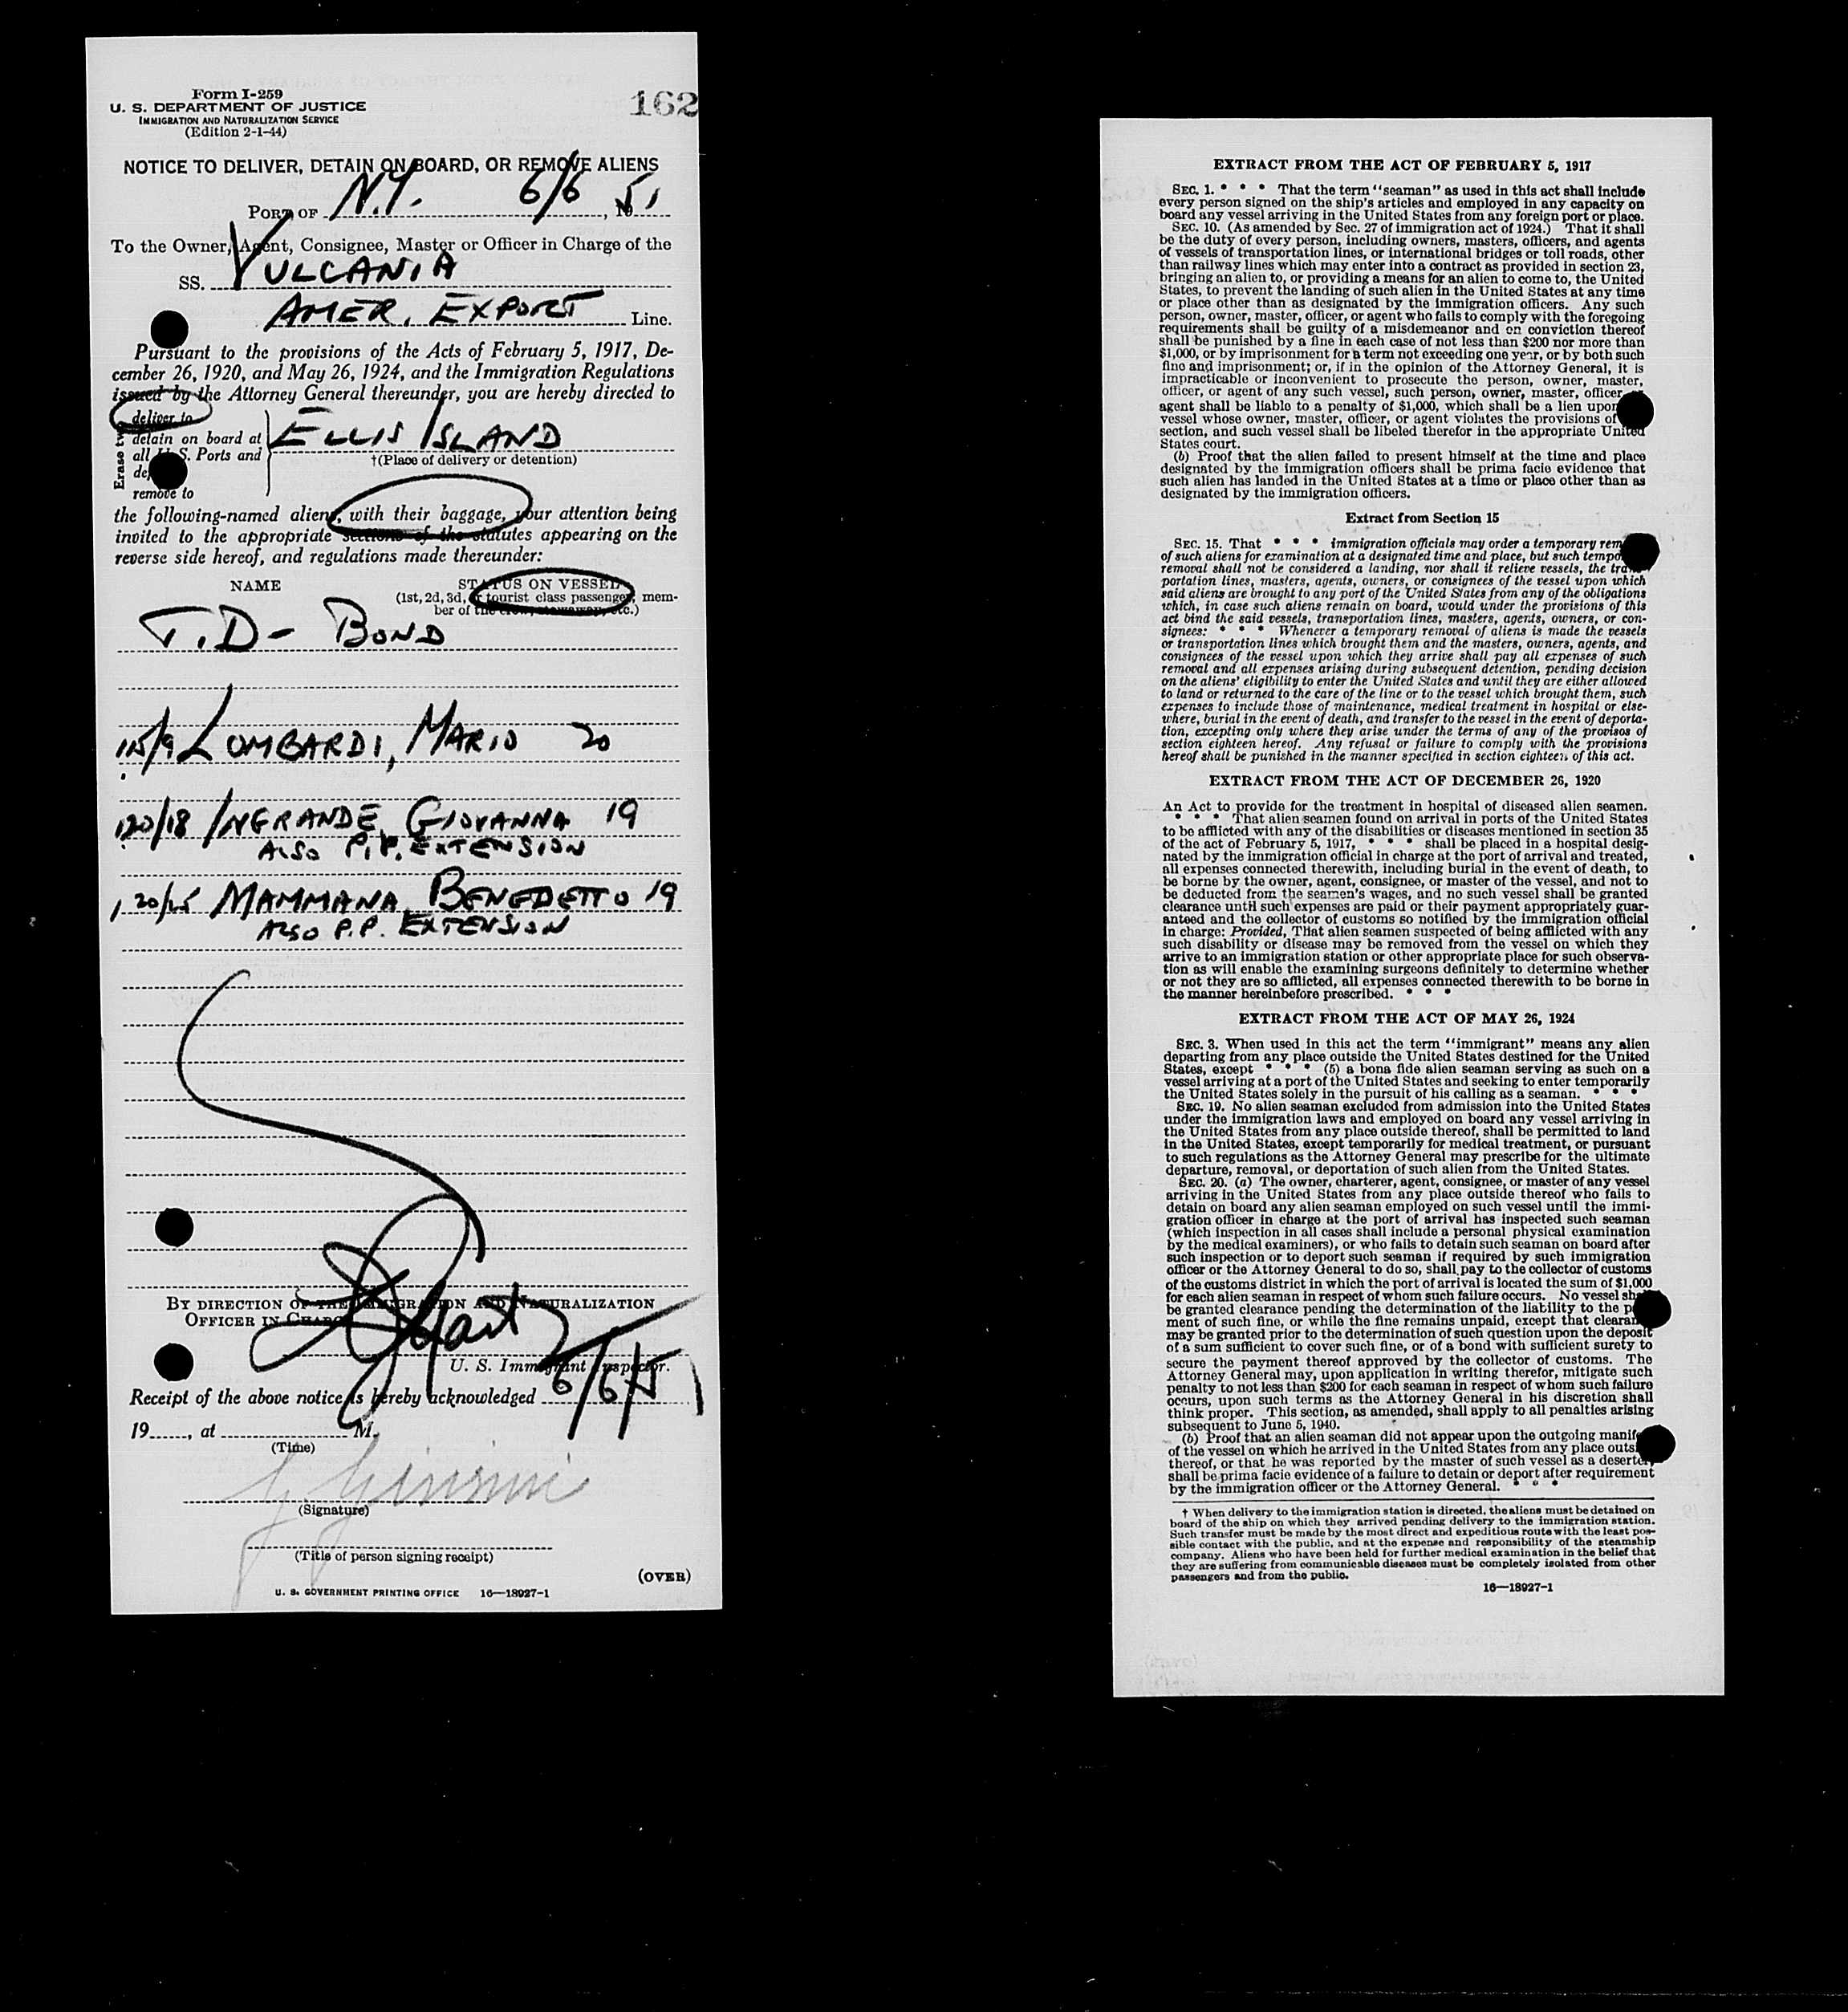 Form I-259
U. S. DEPARTMENT OF JUSTICE
IMMIGRATION AND NATURALIZATION SERVICE
(Edition 2-1-44)
162
NOTICE TO DELIVER, DETAIN ON BOARD, OR REMOVE ALIENS
PORT OF N.Y. 6/6, 1951
To the Owner, Agent, Consignee, Master or Officer in Charge of the
SS. VULCANIA
AMER. EXPORT Line.
Pursuant to the provisions of the Acts of February 5, 1917, De-
cember 26, 1920, and May 26, 1924, and the Immigration Regulations
issued by the Attorney General thereunder, you are hereby directed to
Erase two
deliver to
detain on board at
all U. S. Ports and
remove to
ELLIS ISLAND
†(Place of delivery or detention)
the following-named aliens, with their baggage, your attention being
invited to the appropriate sections of the statutes appearing on the
reverse side hereof, and regulations made thereunder:
NAME
STATUS ON VESSEL
(1st, 2d, 3d, or tourist class passenger, mem-
ber of the crew, stowaway, etc.)
T.D- BOND
115/9 LOMBARDI, MARIO 20
120/18 INGRANDE, GIOVANNA 19
ALSO P.P. EXTENSION
120/25 MAMMANA, BENEDETTO 19
ALSO P.P. EXTENSION
BY DIRECTION OF THE IMMIGRATION AND NATURALIZATION
OFFICER IN CHARGE
U. S. Immigrant Inspector.
Receipt of the above notice is hereby acknowledged 6/6/51
19......, at .................. M.
(Time)
(Signature)
(Title of person signing receipt)
(OVER)
U. S. GOVERNMENT PRINTING OFFICE 16—18927-1
EXTRACT FROM THE ACT OF FEBRUARY 5, 1917
SEC. 1. * * * That the term "seaman" as used in this act shall include
every person signed on the ship's articles and employed in any capacity on
board any vessel arriving in the United States from any foreign port or place.
SEC. 10. (As amended by Sec. 27 of immigration act of 1924.) That it shall
be the duty of every person, including owners, masters, officers, and agents
of vessels of transportation lines, or international bridges or toll roads, other
than railway lines which may enter into a contract as provided in section 23,
bringing an alien to, or providing a means for an alien to come to, the United
States, to prevent the landing of such alien in the United States at any time
or place other than as designated by the immigration officers. Any such
person, owner, master, officer, or agent who fails to comply with the foregoing
requirements shall be guilty of a misdemeanor and on conviction thereof
shall be punished by a fine in each case of not less than $200 nor more than
$1,000, or by imprisonment for a term not exceeding one year, or by both such
fine and imprisonment; or, if in the opinion of the Attorney General, it is
impracticable or inconvenient to prosecute the person, owner, master,
officer, or agent of any such vessel, such person, owner, master, officer, or
agent shall be liable to a penalty of $1,000, which shall be a lien upon
vessel whose owner, master, officer, or agent violates the provisions of
section, and such vessel shall be libeled therefor in the appropriate United
States court.
(b) Proof that the alien failed to present himself at the time and place
designated by the immigration officers shall be prima facie evidence that
such alien has landed in the United States at a time or place other than as
designated by the immigration officers.
Extract from Section 15
SEC. 15. That * * * immigration officials may order a temporary rem
of such aliens for examination at a designated time and place, but such tempo
removal shall not be considered a landing, nor shall it relieve vessels, the trans-
portation lines, masters, agents, owners, or consignees of the vessel upon which
said aliens are brought to any port of the United States from any of the obligations
which, in case such aliens remain on board, would under the provisions of this
act bind the said vessels, transportation lines, masters, agents, owners, or con-
signees: * * * Whenever a temporary removal of aliens is made the vessels
or transportation lines which brought them and the masters, owners, agents, and
consignees of the vessel upon which they arrive shall pay all expenses of such
removal and all expenses arising during subsequent detention, pending decision
on the aliens' eligibility to enter the United States and until they are either allowed
to land or returned to the care of the line or to the vessel which brought them, such
expenses to include those of maintenance, medical treatment in hospital or else-
where, burial in the event of death, and transfer to the vessel in the event of deporta-
tion, excepting only where they arise under the terms of any of the provisos of
section eighteen hereof. Any refusal or failure to comply with the provisions
hereof shall be punished in the manner specified in section eighteen of this act.
EXTRACT FROM THE ACT OF DECEMBER 26, 1920
An Act to provide for the treatment in hospital of diseased alien seamen.
* * * That alien seamen found on arrival in ports of the United States
to be afflicted with any of the disabilities or diseases mentioned in section 35
of the act of February 5, 1917, * * * shall be placed in a hospital desig-
nated by the immigration official in charge at the port of arrival and treated,
all expenses connected therewith, including burial in the event of death, to
be borne by the owner, agent, consignee, or master of the vessel, and not to
be deducted from the seamen's wages, and no such vessel shall be granted
clearance until such expenses are paid or their payment appropriately guar-
anteed and the collector of customs so notified by the immigration official
in charge: Provided, That alien seamen suspected of being afflicted with any
such disability or disease may be removed from the vessel on which they
arrive to an immigration station or other appropriate place for such observa-
tion as will enable the examining surgeons definitely to determine whether
or not they are so afflicted, all expenses connected therewith to be borne in
the manner hereinbefore prescribed. * * *
EXTRACT FROM THE ACT OF MAY 26, 1924
SEC. 3. When used in this act the term "immigrant" means any alien
departing from any place outside the United States destined for the United
States, except * * * (5) a bona fide alien seaman serving as such on a
vessel arriving at a port of the United States and seeking to enter temporarily
the United States solely in the pursuit of his calling as a seaman. * * *
SEC. 19. No alien seaman excluded from admission into the United States
under the immigration laws and employed on board any vessel arriving in
the United States from any place outside thereof, shall be permitted to land
in the United States, except temporarily for medical treatment, or pursuant
to such regulations as the Attorney General may prescribe for the ultimate
departure, removal, or deportation of such alien from the United States.
SEC. 20. (a) The owner, charterer, agent, consignee, or master of any vessel
arriving in the United States from any place outside thereof who fails to
detain on board any alien seaman employed on such vessel until the immi-
gration officer in charge at the port of arrival has inspected such seaman
(which inspection in all cases shall include a personal physical examination
by the medical examiners), or who fails to detain such seaman on board after
such inspection or to deport such seaman if required by such immigration
officer or the Attorney General to do so, shall pay to the collector of customs
of the customs district in which the port of arrival is located the sum of $1,000
for each alien seaman in respect of whom such failure occurs. No vessel shall
be granted clearance pending the determination of the liability to the pay-
ment of such fine, or while the fine remains unpaid, except that clearance
may be granted prior to the determination of such question upon the deposit
of a sum sufficient to cover such fine, or of a bond with sufficient surety to
secure the payment thereof approved by the collector of customs. The
Attorney General may, upon application in writing therefor, mitigate such
penalty to not less than $200 for each seaman in respect of whom such failure
occurs, upon such terms as the Attorney General in his discretion shall
think proper. This section, as amended, shall apply to all penalties arising
subsequent to June 5, 1940.
(b) Proof that an alien seaman did not appear upon the outgoing manifest
of the vessel on which he arrived in the United States from any place outside
thereof, or that he was reported by the master of such vessel as a deserter,
shall be prima facie evidence of a failure to detain or deport after requirement
by the immigration officer or the Attorney General. * * *
† When delivery to the immigration station is directed, the aliens must be detained on
board of the ship on which they arrived pending delivery to the immigration station.
Such transfer must be made by the most direct and expeditious route with the least pos-
sible contact with the public, and at the expense and responsibility of the steamship
company. Aliens who have been held for further medical examination in the belief that
they are suffering from communicable diseases must be completely isolated from other
passengers and from the public.
16—18927-1